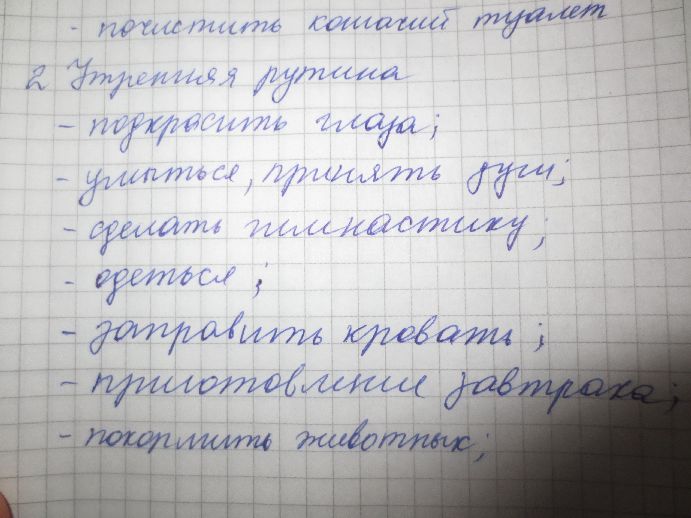 - почистить кошачий туалет
2 Утренняя рутина
- подкрасить глаза;
- умыться, принять душ;
- сделать гимнастику;
- одеться;
- заправить кровать;
- приготовление завтрака;
- покормить животных;